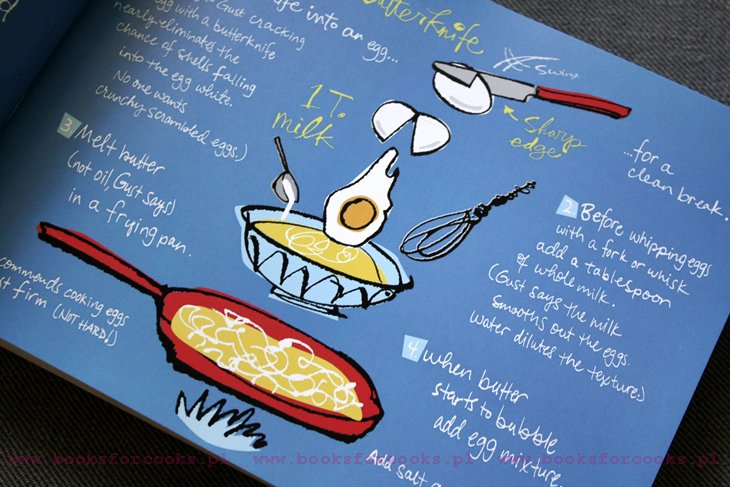 ife into an egg...
butterknife
Gust cracking
egg with a butterknife
nearly eliminated the
chance of shells falling
into the egg white.
No one wants
crunchy scrambled eggs.)
swing
sharp
edge
...for a
clean break.
1 T.
milk
2 Before whipping eggs
with a fork or whisk
add a tablespoon
of whole milk.
(Gust says the milk
smooths out the eggs.
Water dilutes the texture.)
3 Melt butter
(not oil, Gust says)
in a frying pan.
4 when butter
starts to bubble
add egg mixture.
Add salt
commends cooking eggs
st firm (NOT HARD!)
www.booksforcooks.pl www.booksforcooks.pl www.booksforcooks.pl